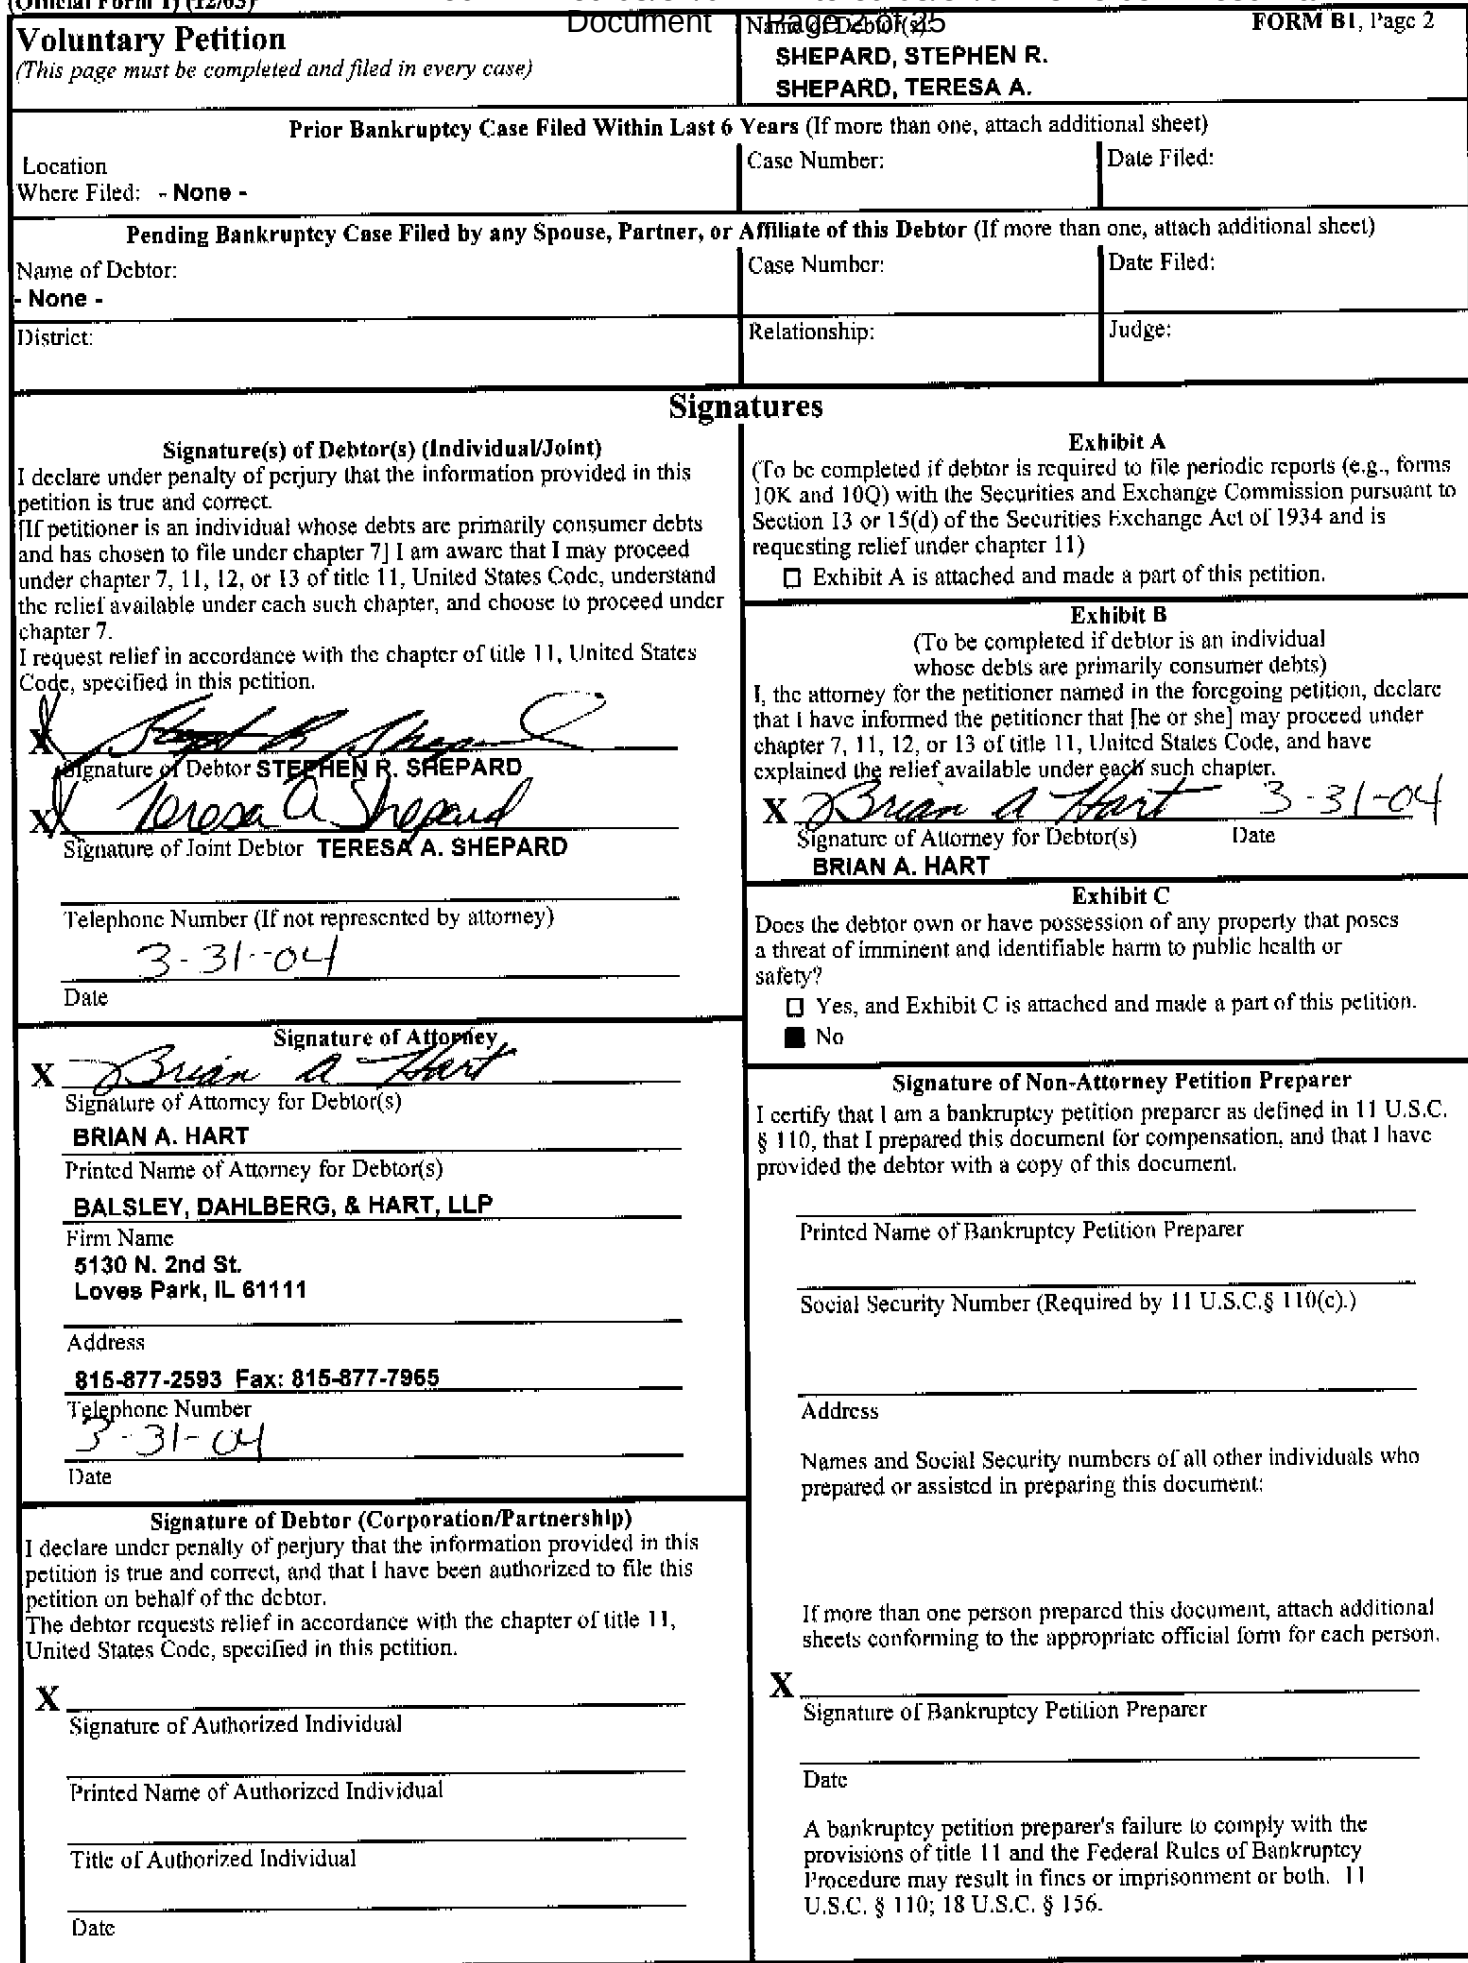 (Official Form 1) (12/03)
Document Page 2 of 25
Voluntary Petition
(This page must be completed and filed in every case)
Name of Debtor(s):
FORM B1, Page 2
SHEPARD, STEPHEN R.
SHEPARD, TERESA A.
Prior Bankruptcy Case Filed Within Last 6 Years (If more than one, attach additional sheet)
Location
Where Filed: - None -
Case Number:
Date Filed:
Pending Bankruptcy Case Filed by any Spouse, Partner, or Affiliate of this Debtor (If more than one, attach additional sheet)
Name of Debtor:
- None -
Case Number:
Date Filed:
District:
Relationship:
Judge:
Signatures
Signature(s) of Debtor(s) (Individual/Joint)
I declare under penalty of perjury that the information provided in this
petition is true and correct.
[If petitioner is an individual whose debts are primarily consumer debts
and has chosen to file under chapter 7] I am aware that I may proceed
under chapter 7, 11, 12, or 13 of title 11, United States Code, understand
the relief available under each such chapter, and choose to proceed under
chapter 7.
I request relief in accordance with the chapter of title 11, United States
Code, specified in this petition.
X
Signature of Debtor STEPHEN R. SHEPARD
X Teresa A Shepard
Signature of Joint Debtor TERESA A. SHEPARD
Telephone Number (If not represented by attorney)
3-31-04
Date
Signature of Attorney
X Brian A Hart
Signature of Attorney for Debtor(s)
BRIAN A. HART
Printed Name of Attorney for Debtor(s)
BALSLEY, DAHLBERG, & HART, LLP
Firm Name
5130 N. 2nd St.
Loves Park, IL 61111
Address
815-877-2593 Fax: 815-877-7965
Telephone Number
3-31-04
Date
Signature of Debtor (Corporation/Partnership)
I declare under penalty of perjury that the information provided in this
petition is true and correct, and that I have been authorized to file this
petition on behalf of the debtor.
The debtor requests relief in accordance with the chapter of title 11,
United States Code, specified in this petition.
X
Signature of Authorized Individual
Printed Name of Authorized Individual
Title of Authorized Individual
Date
Exhibit A
(To be completed if debtor is required to file periodic reports (e.g., forms
10K and 10Q) with the Securities and Exchange Commission pursuant to
Section 13 or 15(d) of the Securities Exchange Act of 1934 and is
requesting relief under chapter 11)
☐ Exhibit A is attached and made a part of this petition.
Exhibit B
(To be completed if debtor is an individual
whose debts are primarily consumer debts)
I, the attorney for the petitioner named in the foregoing petition, declare
that I have informed the petitioner that [he or she] may proceed under
chapter 7, 11, 12, or 13 of title 11, United States Code, and have
explained the relief available under each such chapter.
X Brian A Hart 3-31-04
Signature of Attorney for Debtor(s) Date
BRIAN A. HART
Exhibit C
Does the debtor own or have possession of any property that poses
a threat of imminent and identifiable harm to public health or
safety?
☐ Yes, and Exhibit C is attached and made a part of this petition.
■ No
Signature of Non-Attorney Petition Preparer
I certify that I am a bankruptcy petition preparer as defined in 11 U.S.C.
§ 110, that I prepared this document for compensation, and that I have
provided the debtor with a copy of this document.
Printed Name of Bankruptcy Petition Preparer
Social Security Number (Required by 11 U.S.C.§ 110(c).)
Address
Names and Social Security numbers of all other individuals who
prepared or assisted in preparing this document:
If more than one person prepared this document, attach additional
sheets conforming to the appropriate official form for each person.
X
Signature of Bankruptcy Petition Preparer
Date
A bankruptcy petition preparer's failure to comply with the
provisions of title 11 and the Federal Rules of Bankruptcy
Procedure may result in fines or imprisonment or both. 11
U.S.C. § 110; 18 U.S.C. § 156.